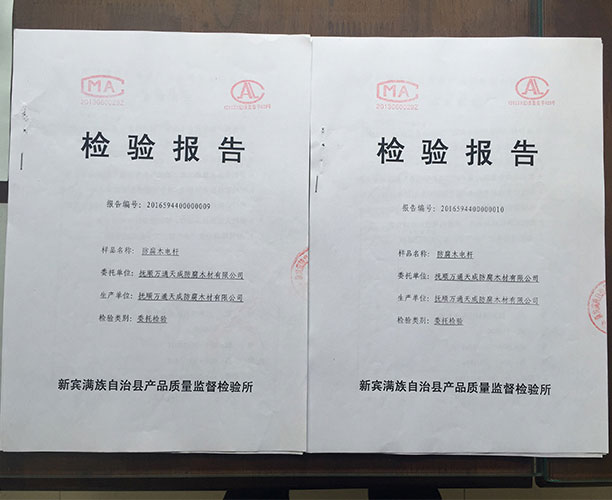 MA
AL
检验报告
报告编号：2016594400000009
样品名称：防腐木电杆
委托单位：抚顺万通天成防腐木材有限公司
生产单位：抚顺万通天成防腐木材有限公司
检验类别：委托检验
新宾满族自治县产品质量监督检验所
MA
AL
检验报告
报告编号：2016594400000010
样品名称：防腐木电杆
委托单位：抚顺万通天成防腐木材有限公司
生产单位：抚顺万通天成防腐木材有限公司
检验类别：委托检验
新宾满族自治县产品质量监督检验所